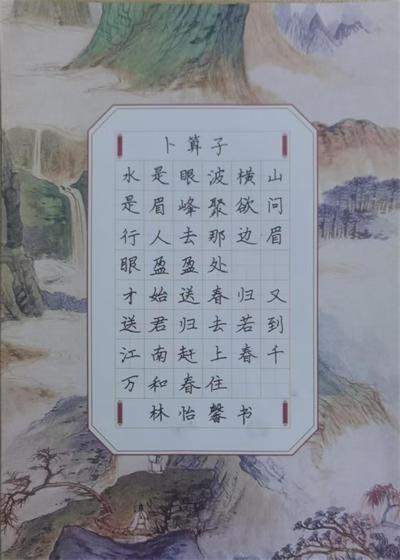 卜算子
水是眼波横山
是眉峰聚欲问
行人去那边眉
眼盈盈处
才始送春归又
送君归去若到
江南赶上春千
万和春住
林怡馨书